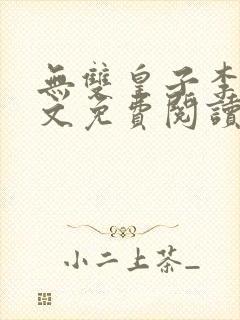 無雙皇子李
文免費閱讀
小二上茶_